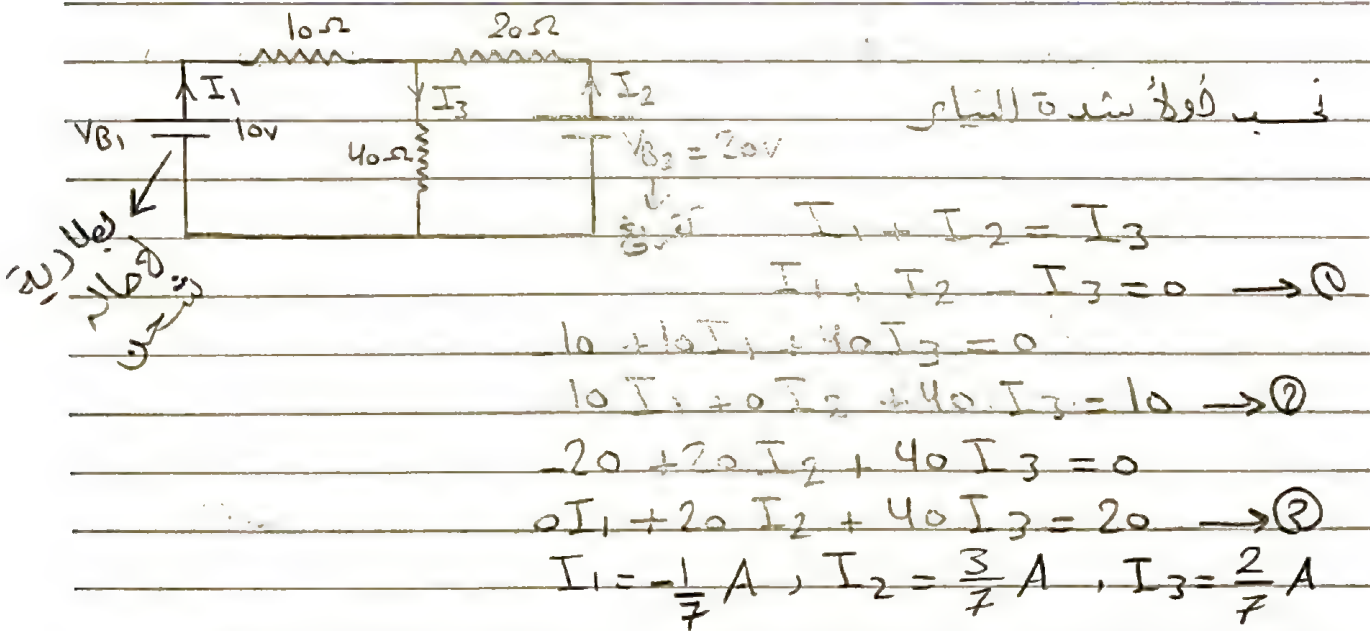 10Ω 20Ω
I1 I3 I2
VB1 10v 40Ω VB2 = 20v
نحسب أولاً شدة التيار
I1 + I2 = I3
I1 + I2 - I3 = 0 → ①
-10 + 10I1 + 40I3 = 0
10I1 + 0I2 + 40I3 = 10 → ②
-20 + 20I2 + 40I3 = 0
0I1 + 20I2 + 40I3 = 20 → ③
I1 = -1/7 A, I2 = 3/7 A, I3 = 2/7 A
شحن